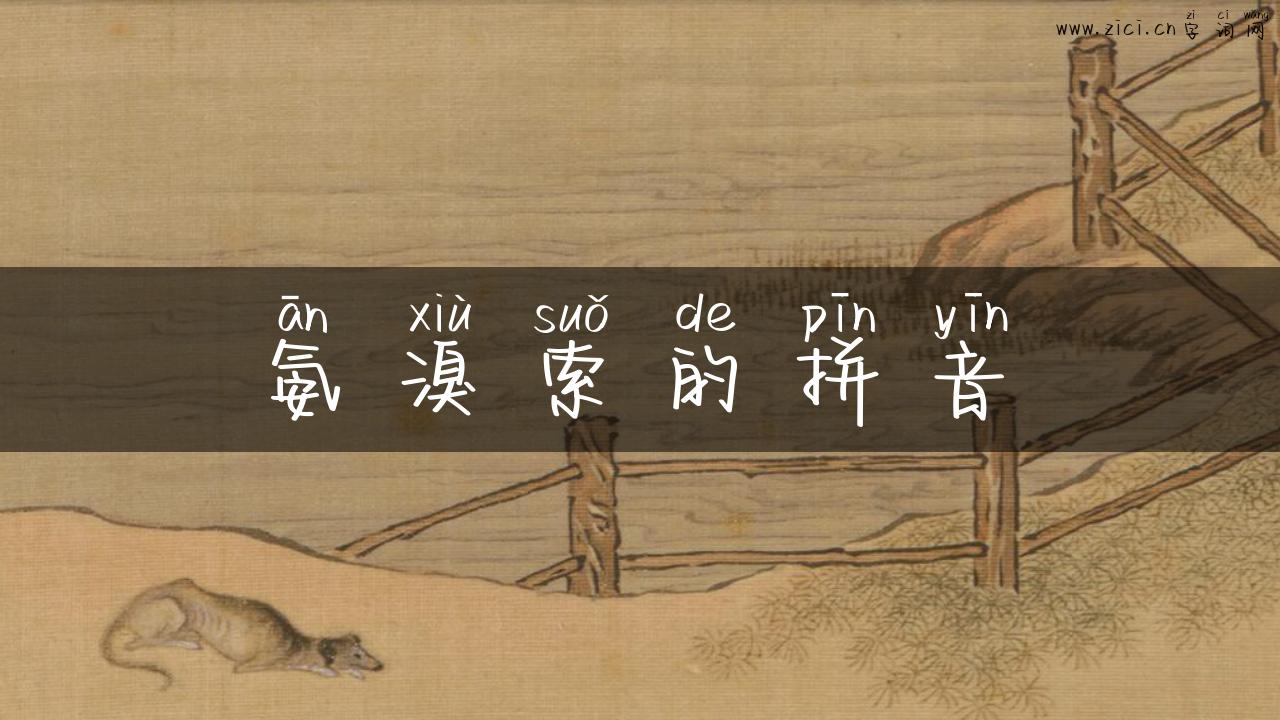 zi ci wang
www.zici.cn 字词网
ān xiù suǒ de pīn yīn
氨溴索的拼音